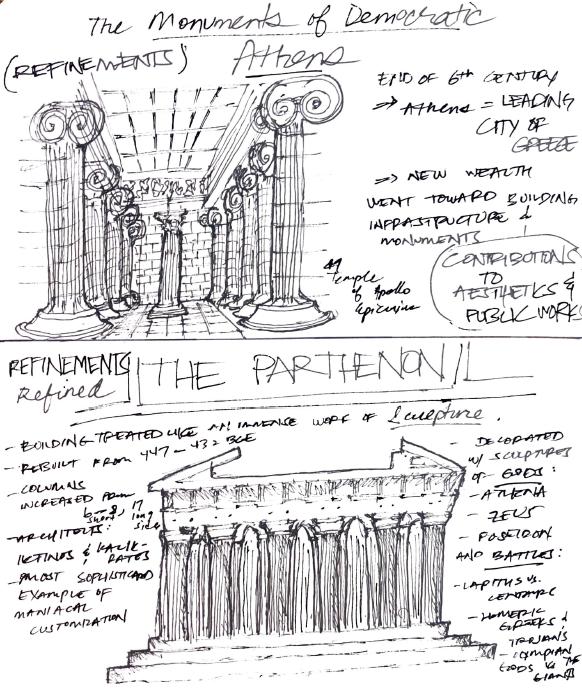 The Monuments of Democratic
Athens
(REFINEMENTS)
END OF 6th CENTURY
=> Athens = LEADING
CITY OF
GREECE
=> NEW WEALTH
WENT TOWARD BUILDING
INFRASTRUCTURE &
MONUMENTS
CONTRIBUTIONS
TO
AESTHETICS &
PUBLIC WORKS
Temple
of Apollo
Epicurius
REFINEMENTS
Refined
THE PARTHENON
- BUILDING TREATED LIKE AN IMMENSE WORK OF Sculpture.
- REBUILT FROM 447 - 432 BCE
- COLUMNS
INCREASED FROM
6 - 8, 17
short, long
side
- ARCHITECTS:
IKTINOS & KALIK-
RATES
- MOST SOPHISTICATED
EXAMPLE OF
MANIACAL
CUSTOMIZATION
- DECORATED
w/ SCULPTURES
OF GODS:
- ATHENA
- ZEUS
- POSEIDON
AND BATTLES:
- LAPITHS VS.
CENTAURS
- HOMERIC
GREEKS &
TROJANS
- OLYMPIAN
GODS VS THE
GIANTS